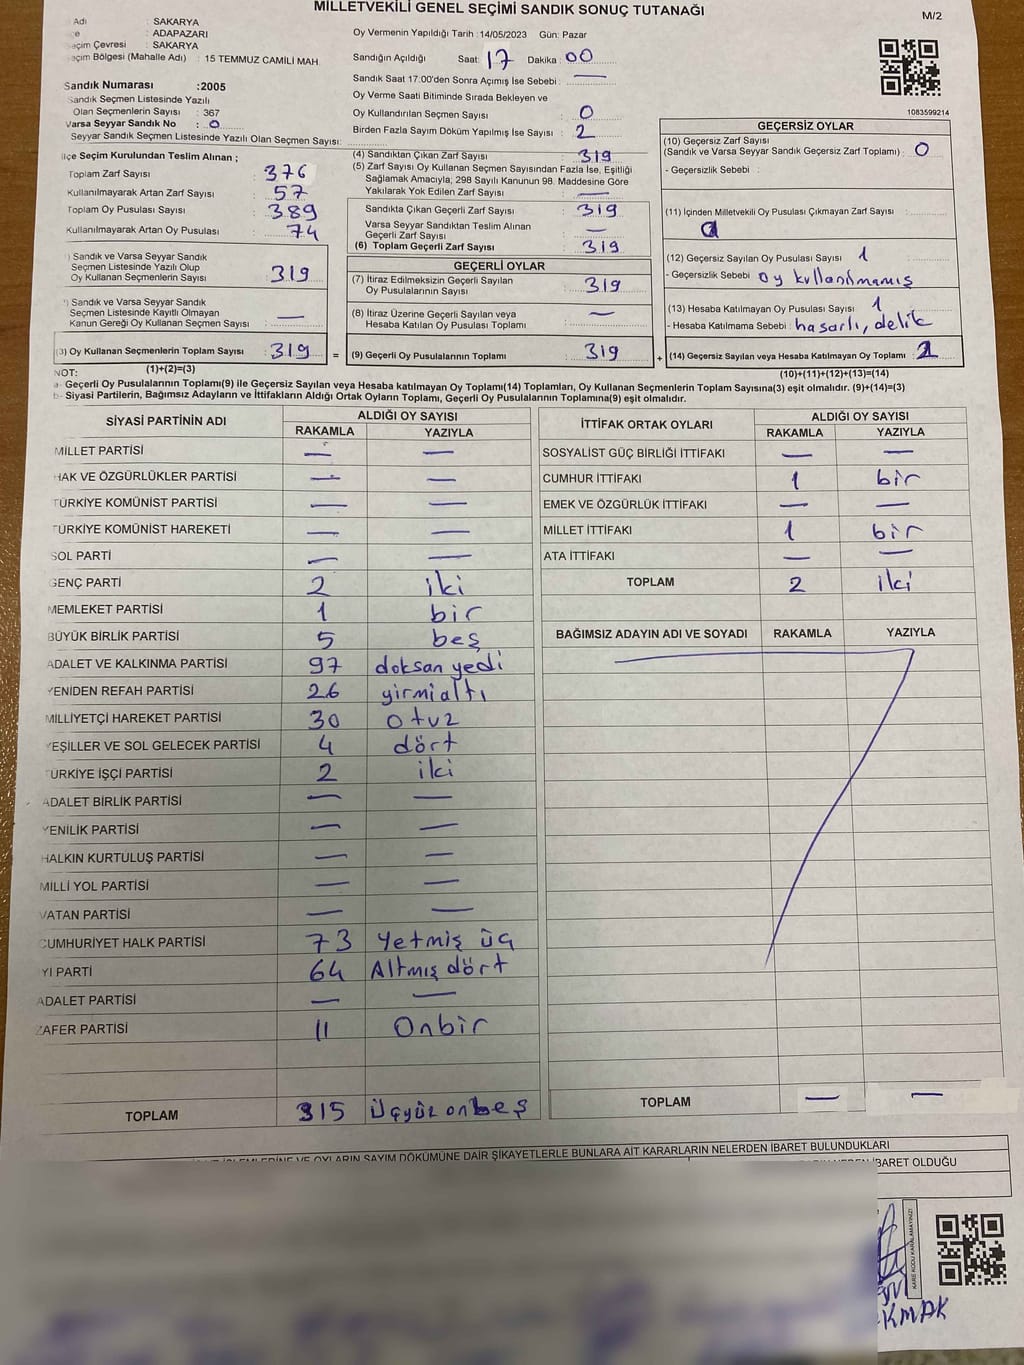 MİLLETVEKİLİ GENEL SEÇİMİ SANDIK SONUÇ TUTANAĞI
M/2
Adı : SAKARYA
: ADAPAZARI
eçim Çevresi : SAKARYA
eçim Bölgesi (Mahalle Adı) : 15 TEMMUZ CAMİLİ MAH.
Oy Vermenin Yapıldığı Tarih : 14/05/2023 Gün: Pazar
Sandığın Açıldığı Saat 17 Dakika 00
Sandık Saat 17:00'den Sonra Açımış İse Sebebi : —
Oy Verme Saati Bitiminde Sırada Bekleyen ve
Oy Kullandırılan Seçmen Sayısı : 0
Birden Fazla Sayım Döküm Yapılmış İse Sayısı : 2
1083599214
Sandık Numarası :2005
Sandık Seçmen Listesinde Yazılı
Olan Seçmenlerin Sayısı : 367
Varsa Seyyar Sandık No : 0
Seyyar Sandık Seçmen Listesinde Yazılı Olan Seçmen Sayısı:
İlçe Seçim Kurulundan Teslim Alınan ;
Toplam Zarf Sayısı : 376
Kullanılmayarak Artan Zarf Sayısı : 57
Toplam Oy Pusulası Sayısı : 389
Kullanılmayarak Artan Oy Pusulası : 74
) Sandık ve Varsa Seyyar Sandık
Seçmen Listesinde Yazılı Olup
Oy Kullanan Seçmenlerin Sayısı : 319
) Sandık ve Varsa Seyyar Sandık
Seçmen Listesinde Kayıtlı Olmayan
Kanun Gereği Oy Kullanan Seçmen Sayısı : —
(3) Oy Kullanan Seçmenlerin Toplam Sayısı : 319
(1)+(2)=(3)
(4) Sandıktan Çıkan Zarf Sayısı : 319
(5) Zarf Sayısı Oy Kullanan Seçmen Sayısından Fazla İse, Eşitliği
Sağlamak Amacıyla; 298 Sayılı Kanunun 98. Maddesine Göre
Yakılarak Yok Edilen Zarf Sayısı : —
Sandıkta Çıkan Geçerli Zarf Sayısı : 319
Varsa Seyyar Sandıktan Teslim Alınan
Geçerli Zarf Sayısı : —
(6) Toplam Geçerli Zarf Sayısı : 319
GEÇERLİ OYLAR
(7) İtiraz Edilmeksizin Geçerli Sayılan
Oy Pusulalarının Sayısı : 319
(8) İtiraz Üzerine Geçerli Sayılan veya
Hesaba Katılan Oy Pusulası Toplamı : —
= (9) Geçerli Oy Pusulalarının Toplamı : 319
GEÇERSİZ OYLAR
(10) Geçersiz Zarf Sayısı
(Sandık ve Varsa Seyyar Sandık Geçersiz Zarf Toplamı) : 0
- Geçersizlik Sebebi :
(11) İçinden Milletvekili Oy Pusulası Çıkmayan Zarf Sayısı :
(12) Geçersiz Sayılan Oy Pusulası Sayısı : 1
- Geçersizlik Sebebi : oy kullanılmamış
(13) Hesaba Katılmayan Oy Pusulası Sayısı : 1
- Hesaba Katılmama Sebebi : hasarlı, delik
+ (14) Geçersiz Sayılan veya Hesaba Katılmayan Oy Toplamı :
(10)+(11)+(12)+(13)=(14)
NOT:
a- Geçerli Oy Pusulalarının Toplamı(9) ile Geçersiz Sayılan veya Hesaba katılmayan Oy Toplamı(14) Toplamları, Oy Kullanan Seçmenlerin Toplam Sayısına(3) eşit olmalıdır. (9)+(14)=(3)
b- Siyasi Partilerin, Bağımsız Adayların ve İttifakların Aldığı Ortak Oyların Toplamı, Geçerli Oy Pusulalarının Toplamına(9) eşit olmalıdır.
SİYASİ PARTİNİN ADI ALDIĞI OY SAYISI
RAKAMLA YAZIYLA
MİLLET PARTİSİ — —
HAK VE ÖZGÜRLÜKLER PARTİSİ — —
TÜRKİYE KOMÜNİST PARTİSİ — —
TÜRKİYE KOMÜNİST HAREKETİ — —
SOL PARTİ — —
GENÇ PARTİ 2 iki
MEMLEKET PARTİSİ 1 bir
BÜYÜK BİRLİK PARTİSİ 5 beş
ADALET VE KALKINMA PARTİSİ 97 doksan yedi
YENİDEN REFAH PARTİSİ 26 yirmialtı
MİLLİYETÇİ HAREKET PARTİSİ 30 otuz
YEŞİLLER VE SOL GELECEK PARTİSİ 4 dört
TÜRKİYE İŞÇİ PARTİSİ 2 iki
ADALET BİRLİK PARTİSİ — —
YENİLİK PARTİSİ — —
HALKIN KURTULUŞ PARTİSİ — —
MİLLİ YOL PARTİSİ — —
VATAN PARTİSİ — —
CUMHURİYET HALK PARTİSİ 73 Yetmiş üç
Yİ PARTİ 64 Altmış dört
ADALET PARTİSİ — —
ZAFER PARTİSİ 11 Onbir
TOPLAM 315 Üçyüz onbeş
İTTİFAK ORTAK OYLARI ALDIĞI OY SAYISI
RAKAMLA YAZIYLA
SOSYALİST GÜÇ BİRLİĞİ İTTİFAKI — —
CUMHUR İTTİFAKI 1 bir
EMEK VE ÖZGÜRLÜK İTTİFAKI — —
MİLLET İTTİFAKI 1 bir
ATA İTTİFAKI — —
TOPLAM 2 iki
BAĞIMSIZ ADAYIN ADI VE SOYADI RAKAMLA YAZIYLA
TOPLAM — —
İŞLEMLERİNE VE OYLARIN SAYIM DÖKÜMÜNE DAİR ŞİKAYETLERLE BUNLARA AİT KARARLARIN NELERDEN İBARET BULUNDUKLARI
İBARET OLDUĞU
KARE KODU KARALAMAYINIZ!